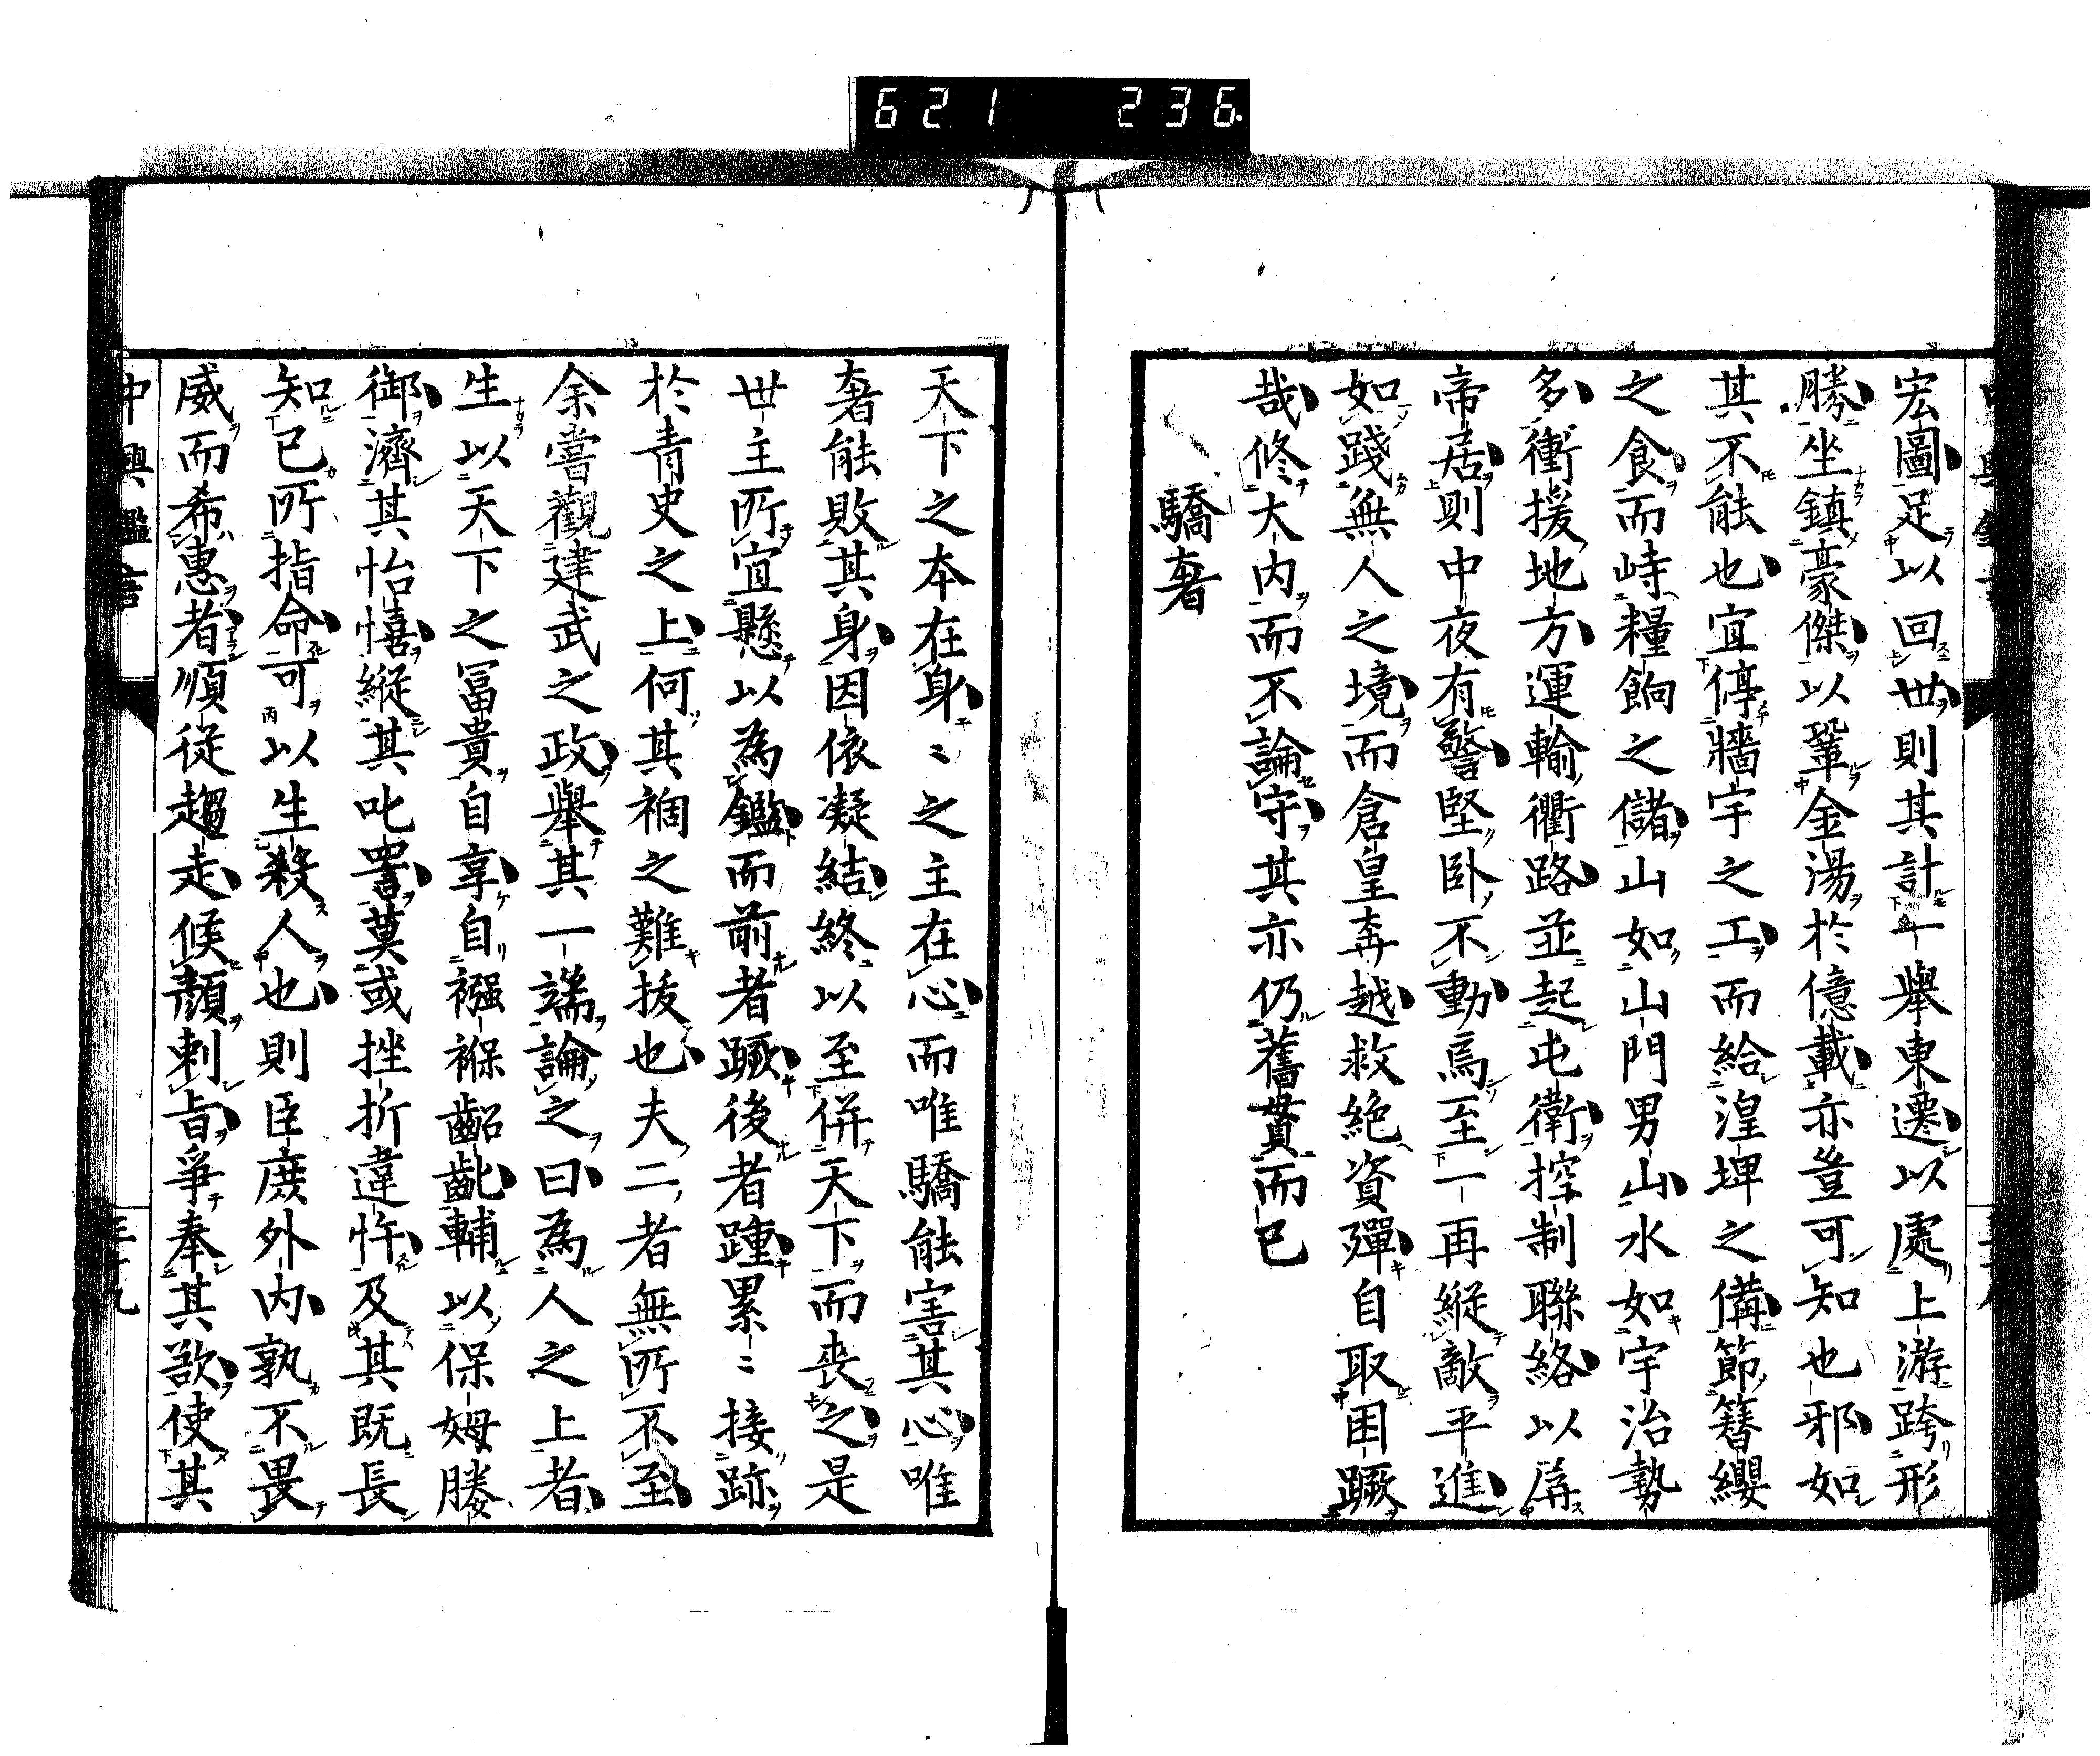 621 236
宏圖足以回世則其計一舉東遷以處上游跨形
勝坐鎮豪傑以鞏金湯於億載亦豈可知也邪如
其不能也宜停牆宇之工而給湟埤之備節簪纓
之食而峙糧餉之儲山如山門男山水如宇治勢
多衝援地方運輸衢路並起屯衛控制聯絡以孱
帝居則中夜有警堅臥不動焉至一再縱敵平進
如踐無人之境而倉皇奔越救絶資殫自取困蹶
哉修大内而不論守其亦仍舊貫而已
驕奢
天下之本在身〻之主在心而唯驕能害其心唯
奢能敗其身因依凝結終以至併天下而喪之是
世主所宜懸以為鑑而前者蹶後者踵累〻接跡
於青史之上何其禍之難拔也夫二者無所不至
余嘗觀建武之政舉其一端論之曰為人之上者
生以天下之冨貴自享自襁褓齠齔輔以保姆媵
御濟其怡憘縱其叱詈莫或挫折違忤及其既長
知已所指命可以生殺人也則臣庶外内孰不畏
威而希惠者順從趨走候顏刺旨爭奉其欲使其
中興鑑言